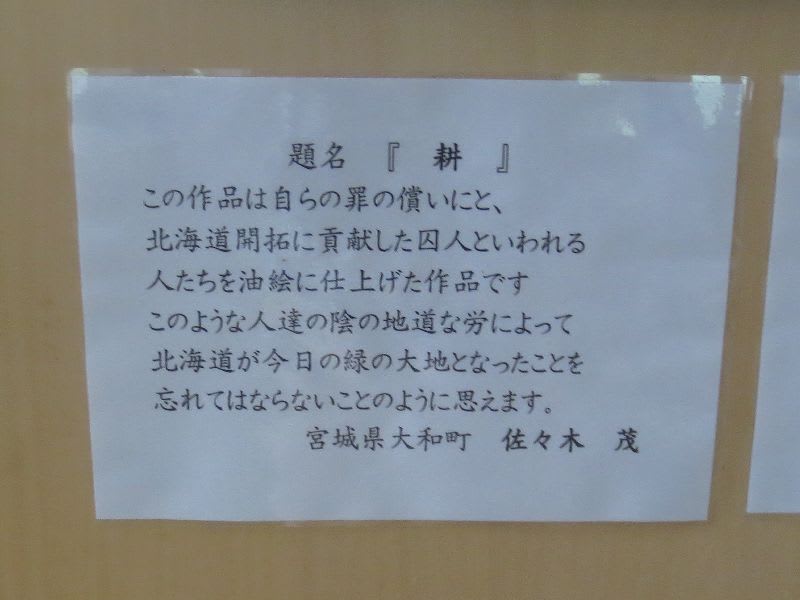 題名 『 耕 』
この作品は自らの罪の償いにと、
北海道開拓に貢献した囚人といわれる
人たちを油絵に仕上げた作品です
このような人達の陰の地道な労によって
北海道が今日の緑の大地となったことを
忘れてはならないことのように思えます。
宮城県大和町 佐々木 茂